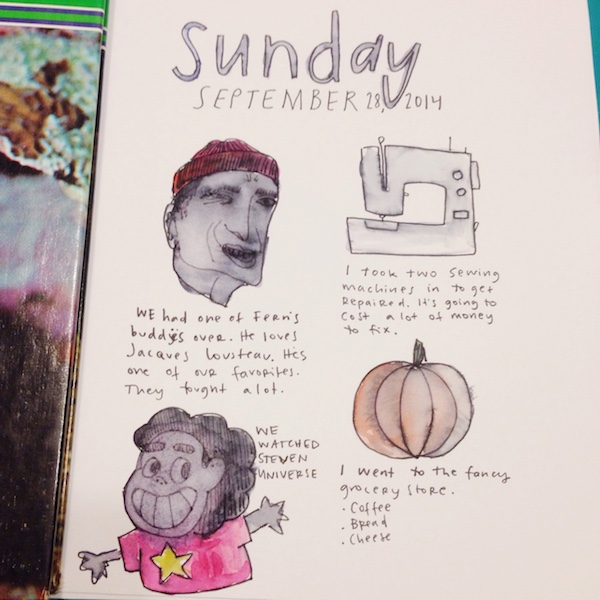 Sunday
SEPTEMBER 28, 2014
WE had one of Fern's
buddies over. He loves
Jacques Cousteau. He's
one of our favorites.
They fought a lot.
I took two sewing
machines in to get
Repaired. It's going to
cost a lot of money
to fix.
WE
WATCHED
STEVEN
UNIVERSE
I went to the fancy
grocery store.
· Coffee
· Bread
· Cheese